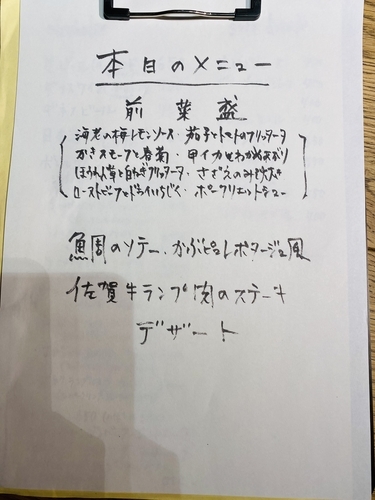 本日のメニュー
前菜盛
海老の梅レモンソース・茄子とトマトのフリッタータ
かきスモークと春菊・甲イカとわかめ
ほうれん草と白ねぎフリッタータ・さざえのみそ
ローストビーフとドライいちじく・ポークリエット
鯛のソテー・かぶピュレポタージュ風
佐賀牛ランプ肉のステーキ
デザート